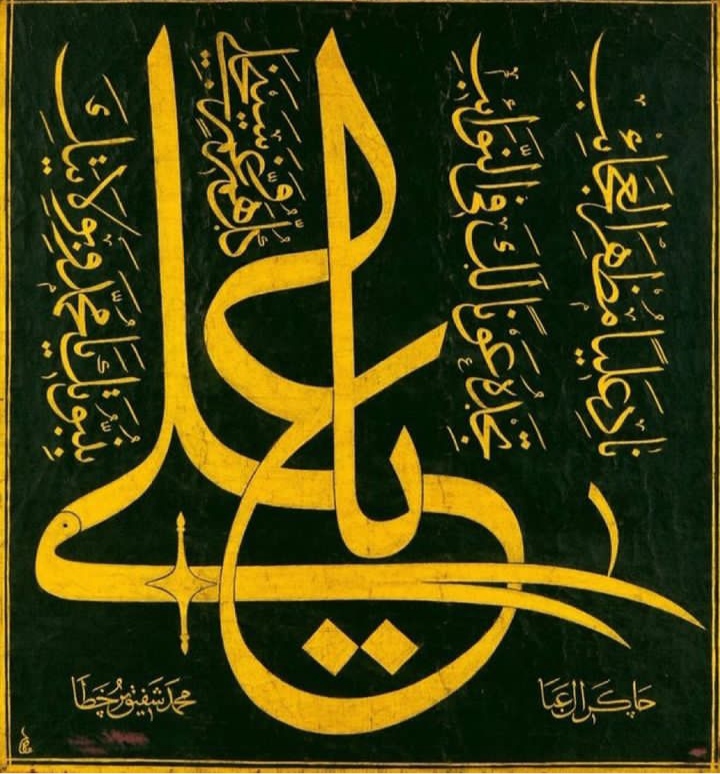 نَادِ عَلِيًّا مُظْهِرَ الْعَجَائِبِ
تَجِدْهُ عَوْنًا لَكَ فِي النَّوَائِبِ
كُلُّ هَمٍّ وَغَمٍّ سَيَنْجَلِي
بِنُبُوَّتِكَ يَا مُحَمَّدُ وَبِوِلَايَتِكَ
يا علي
چاكر آل عبا
محمد شفيق پر خطا